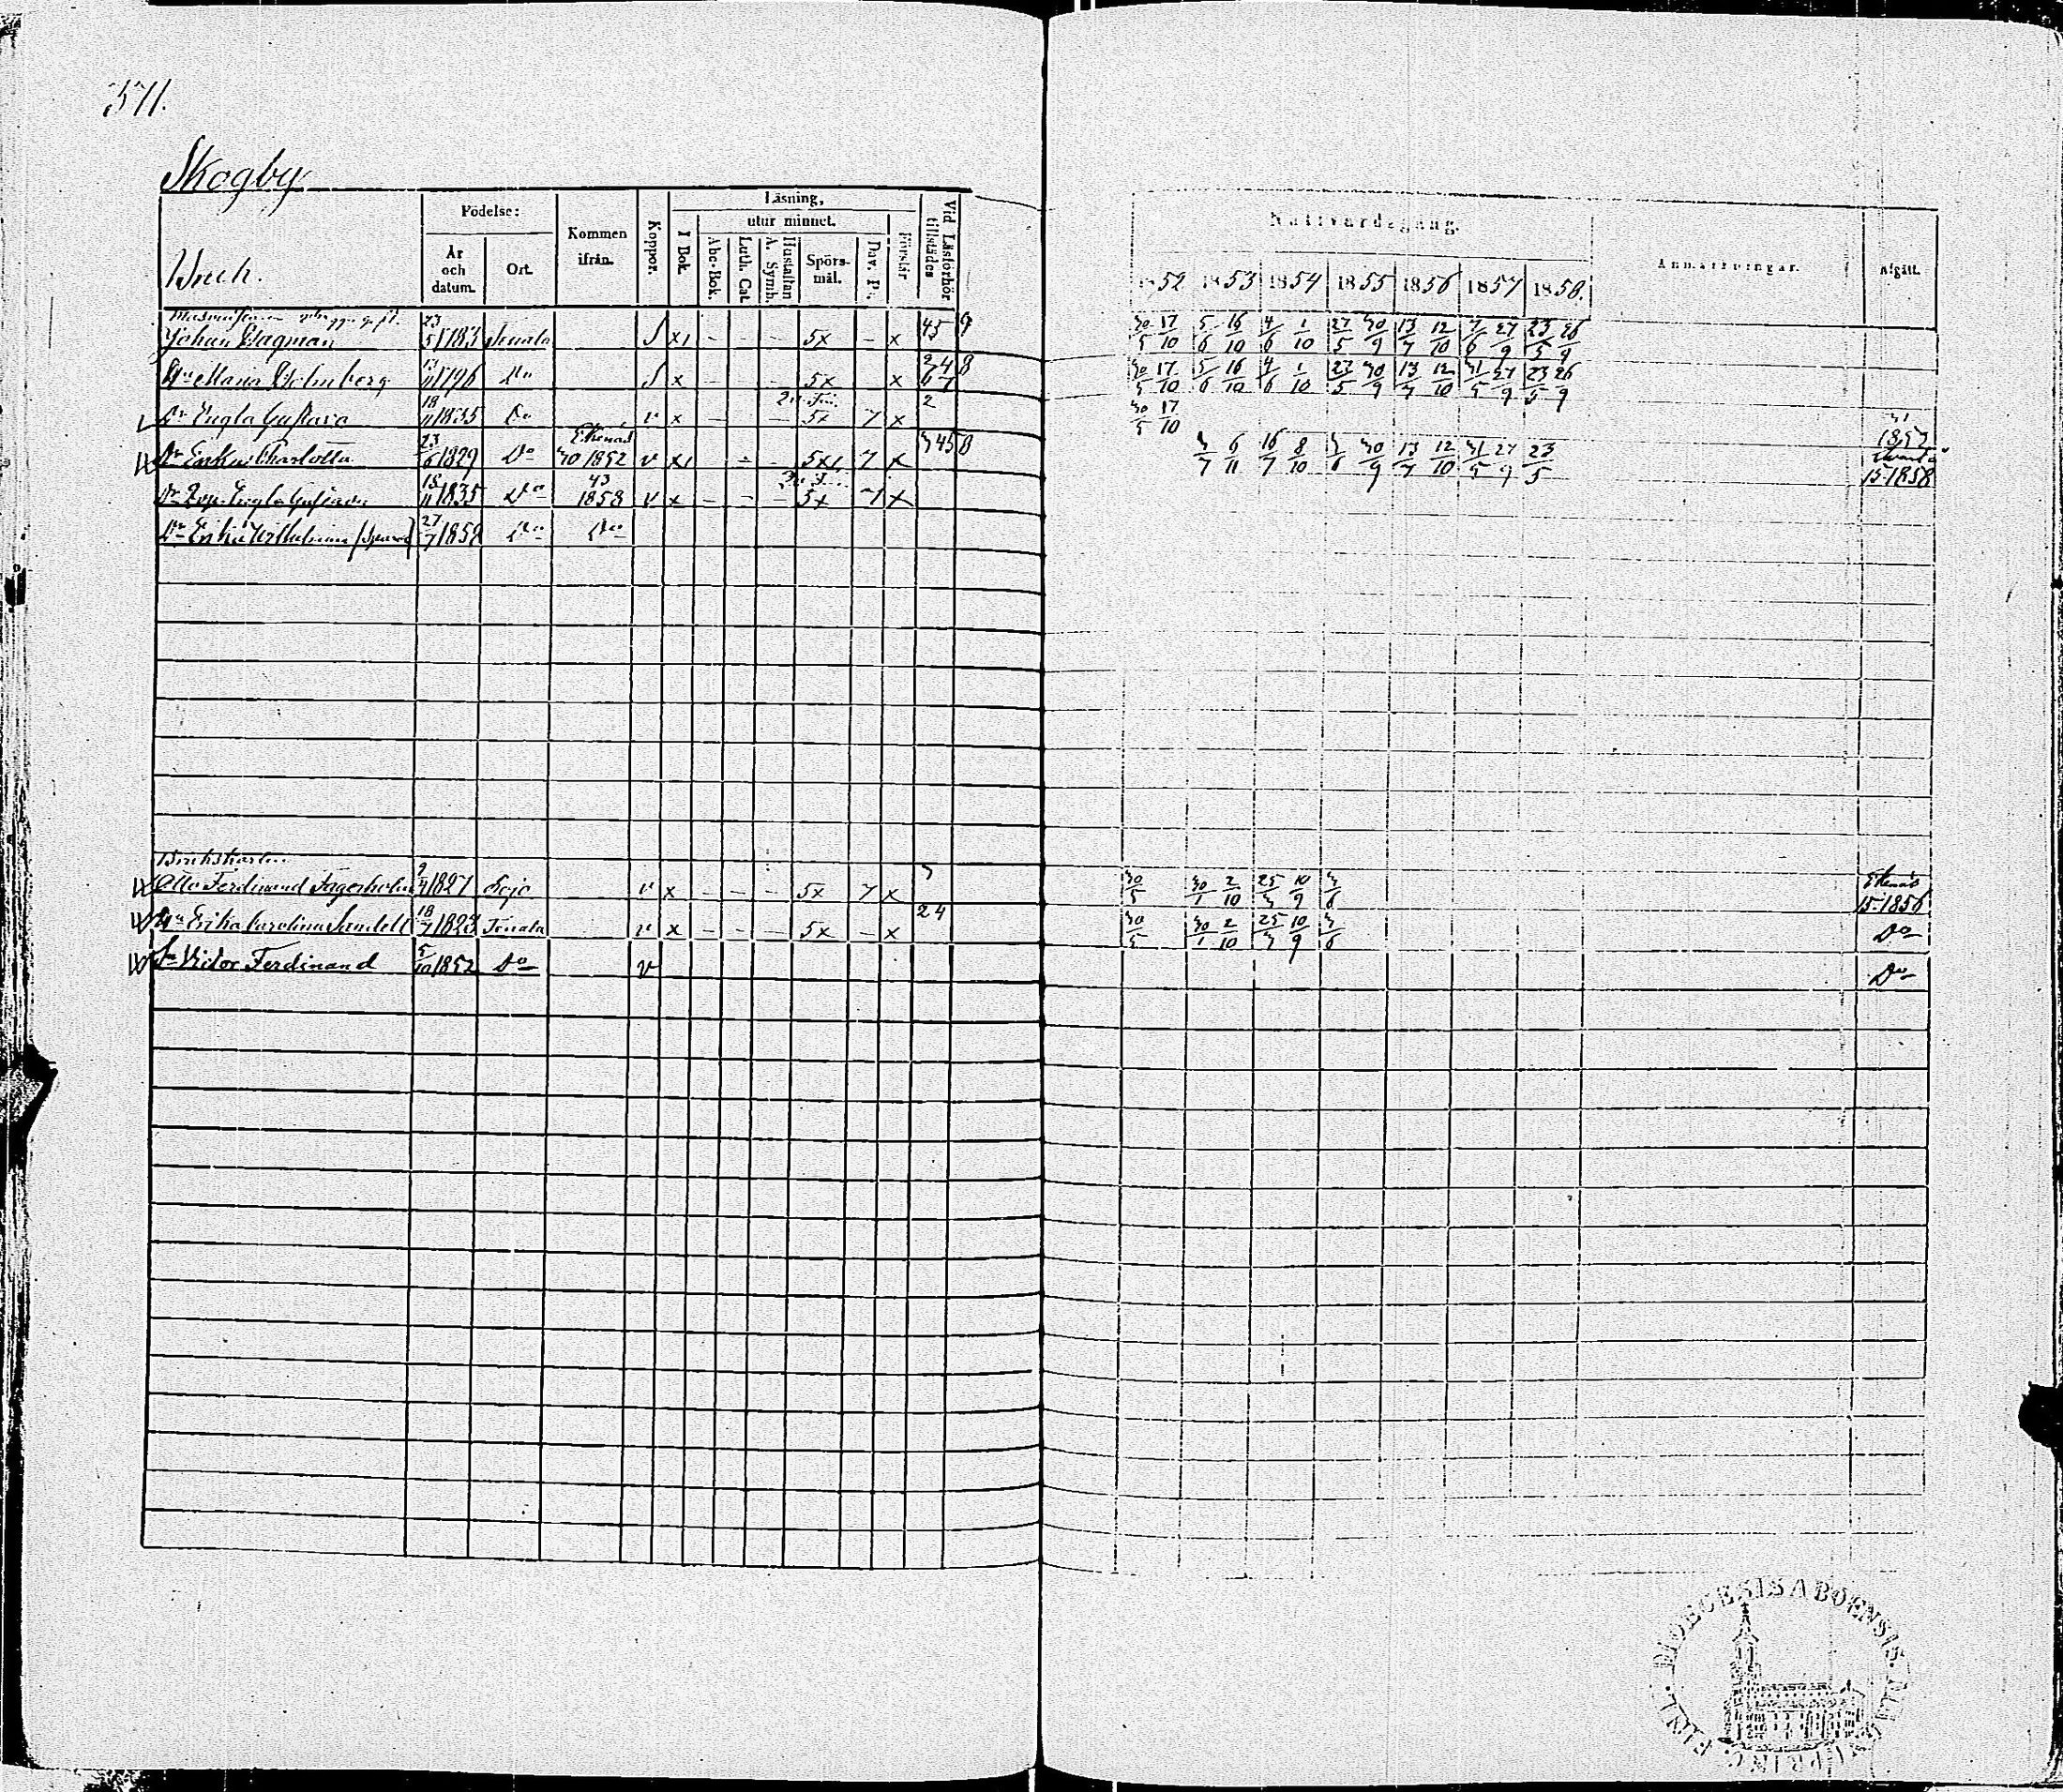 571.
Skogby
Bruk.
Födelse:
År och datum.
Ort.
Kommen ifrån.
Koppor.
Läsning,
I Bok.
utur minnet.
Abc-Bok.
Luth. Cat.
Hustaflan A. Symb.
Spörsmål.
Dav. Ps.
Förstår
Vid Läsförhör tillstädes
Nattvardsgång.
1852 1853 1854 1855 1856 1857 1858.
Anmärkningar.
Afgått.
Johan Dagman 23/5 S x 5x - x 45 9 30/5 17/10 5/6 16/10 4/6 1/10 27/5 30/9 13/7 12/10 7/6 27/9 23/5 26/9
Hu Maria Holmberg 13/11 1796 Do S x - - - 5x x 30/5 17/10 5/6 16/10 4/6 1/10 27/5 30/9 13/7 12/10 31/5 27/9 23/5 26/9
Dr Engla Gustava 18/11 1835 Do v x - - - 5x 7 x 2 30/5 17/10
Charlotta 23/6 1829 Do Ekenäs 30 1852 v x 5x 7 x 3458 3/7 6/11 16/7 8/10 3/6 30/9 13/7 12/10 31/5 27/9 23/5 15-1858
Dr Engla Gustava 18/11 1835 Do 43 1858 v x - - - 5x 7 x
Dr Erika Wilhelmina 27/7 1858 Do Do
Brukskarlen
Otto Ferdinand Fagerholm 9/4 1827 Lojo v x - - - 5x 7 x 3 30/5 30/1 2/10 25/3 10/9 3/6 Ekenäs 15-1856
Hu Erika Carolina Sandell 18/7 1823 Tenala v x - - - 5x - x 24 30/5 30/1 2/10 25/3 10/9 3/6 Do
Sn Victor Ferdinand 5/10 1852 Do v Do
DIOECESIS ABOENSIS